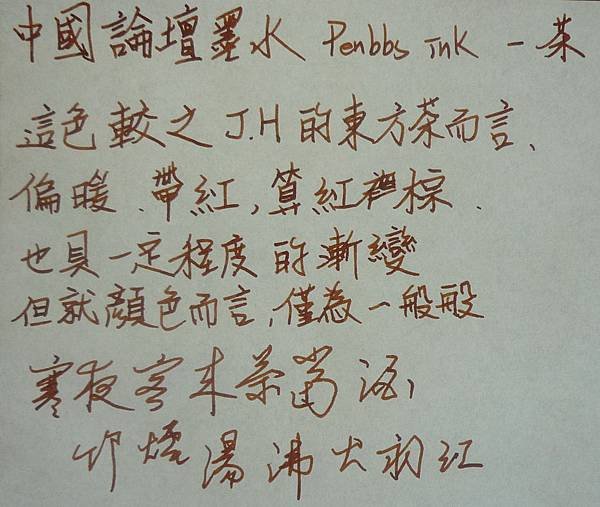 中國論壇墨水 Penbbs ink 一茶
這色較之 J.H 的東方茶而言、
偏暖、帶紅，算紅裡棕．
也具一定程度的漸變
但就顏色而言，僅為一般般
寒夜客來茶當酒，
竹爐湯沸火初紅